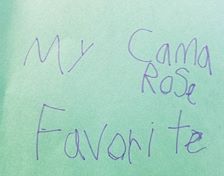 My Cama
Rose
Favorite